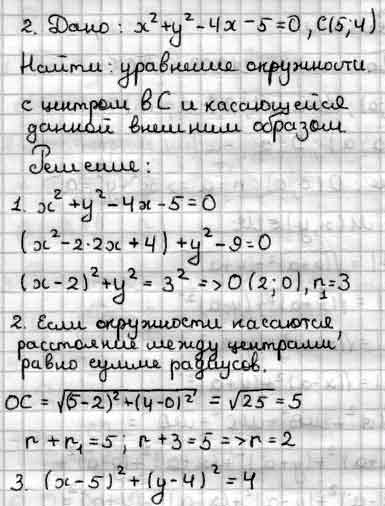 2. Дано: x²+y²-4x-5=0, C(5;4)
Найти: уравнение окружности
с центром в C и касающейся
данной внешним образом.
Решение:
1. x²+y²-4x-5=0
(x²-2·2x+4)+y²-9=0
(x-2)²+y²=3² => O(2;0), r₁=3
2. Если окружности касаются,
расстояние между центрами
равно сумме радиусов.
OC = √(5-2)²+(4-0)² = √25 = 5
r+r₁=5; r+3=5 => r=2
3. (x-5)²+(y-4)²=4